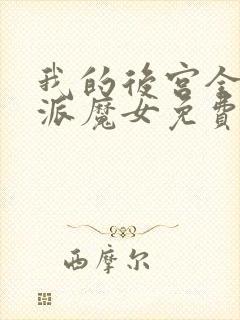 我的後宮全
派魔女免費
西摩尔